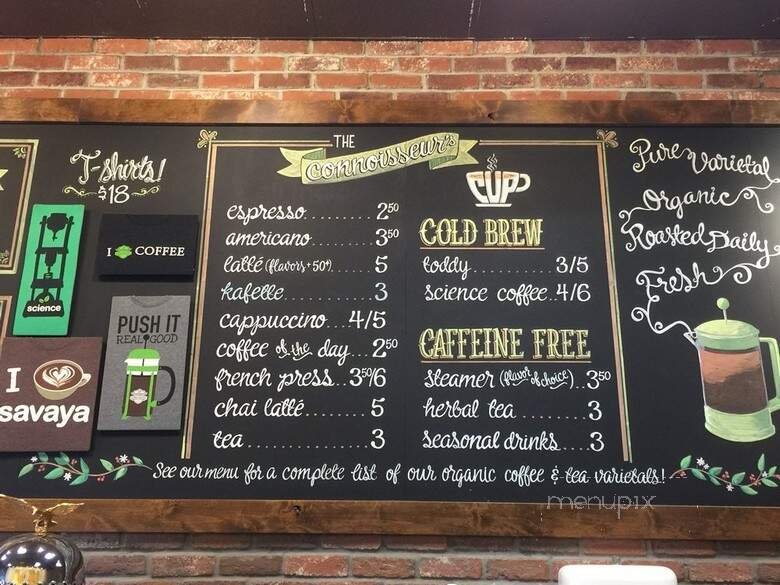 T-shirts!
$18
science
I COFFEE
PUSH IT
REAL GOOD
I
savaya
THE
connoisseur's
CUP
espresso.......... 2⁵⁰
americano.......... 3⁵⁰
latte (flavors + 50¢) 5
kafette............. 3
cappuccino... 4/5
coffee of the day... 2⁵⁰
french press... 3⁵⁰/6
chai latte......... 5
tea............... 3
COLD BREW
toddy........... 3/5
science coffee.. 4/6
CAFFEINE FREE
steamer (flavor of choice).. 3⁵⁰
herbal tea......... 3
seasonal drinks.... 3
See our menu for a complete list of our organic coffee & tea varietals!
Pure Varietal
Organic
Roasted Daily
Fresh
menupix